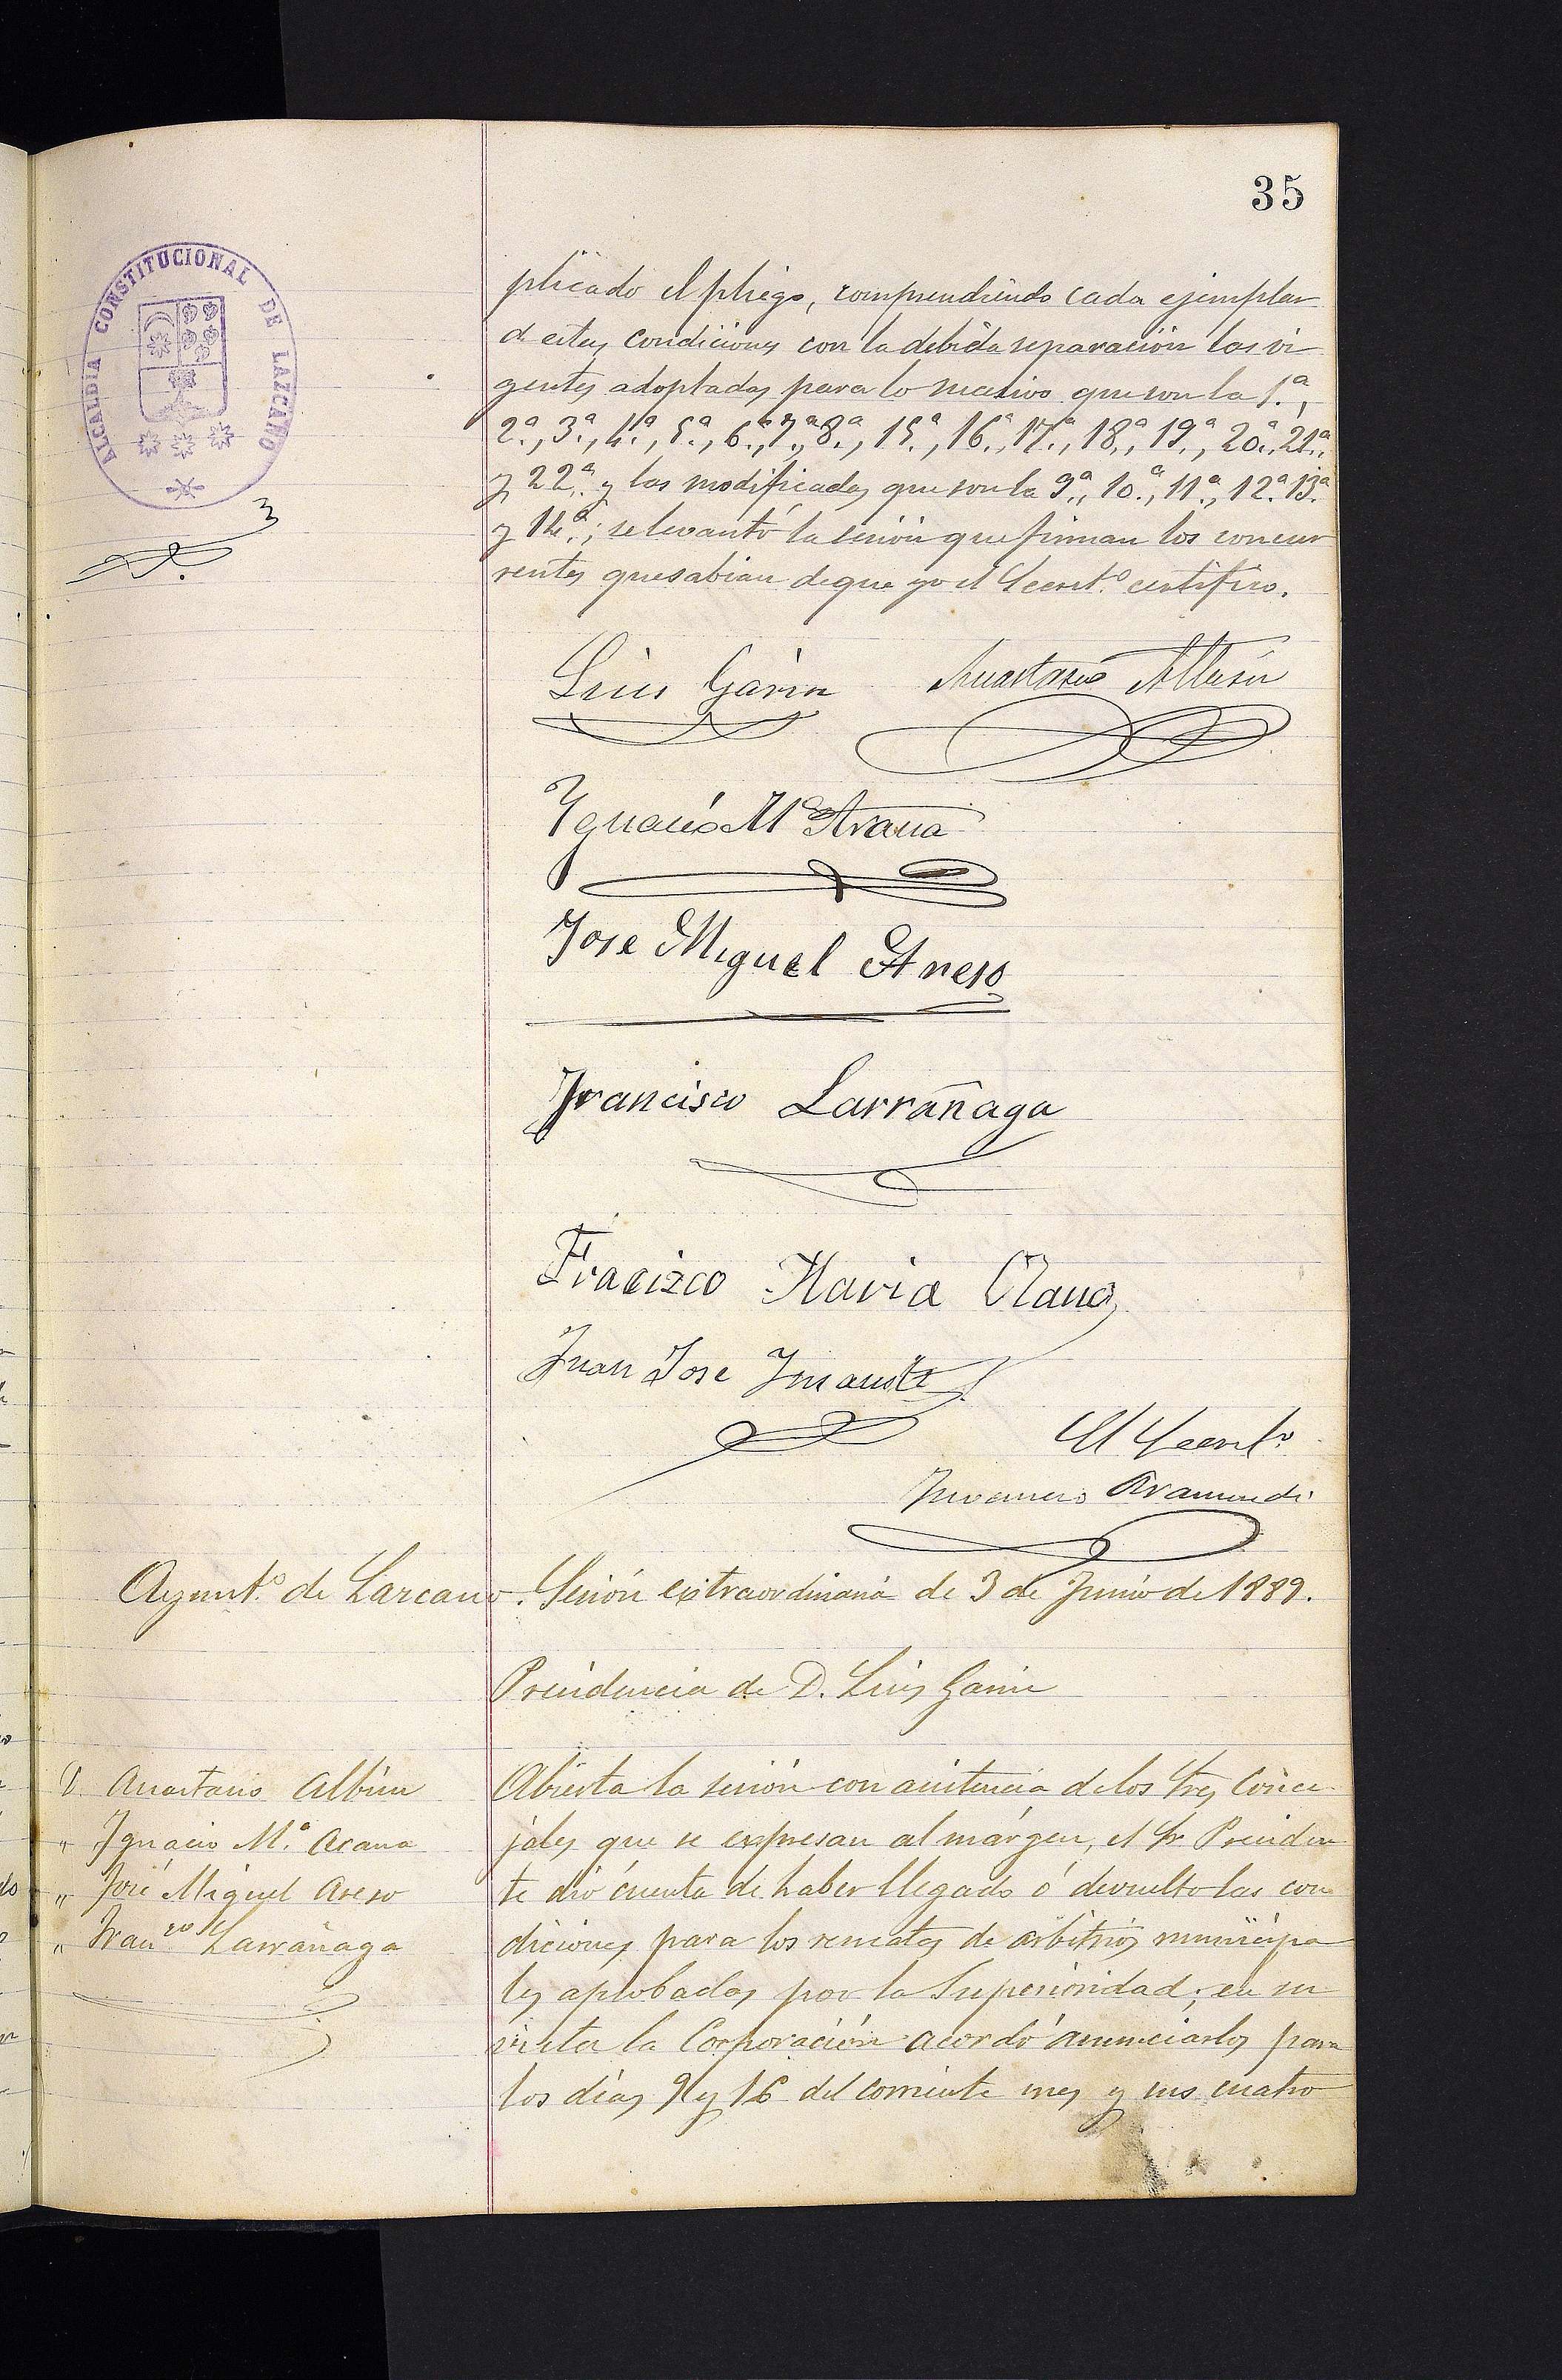 35
ALCALDIA CONSTITUCIONAL DE LAZCANO
plicado el pliego, comprendiendo cada ejemplar
de estas condiciones con la debida separación las vi
gentes adoptadas para lo sucesivo que son la 1.ª,
2.ª, 3.ª, 4.ª, 5.ª, 6.ª, 7.ª, 8.ª, 15.ª, 16.ª, 17.ª, 18.ª, 19.ª, 20.ª, 21.ª,
y 22.ª y las modificadas que son la 9.ª, 10.ª, 11.ª, 12.ª 13.ª
y 14.ª; se levantó la sesión que firman los concur
rentes que sabian de que yo el Secret.º certifico.
Luis Garin Anastasio Albisu
Ygnacio M.ª Arana
Jose Miguel Aseso
Francisco Larrañaga
Fracizco Maria Olano
Juan Jose
El Secret.º
Juvencio Aramendi
Ayunt.º de Lazcano. Sesión extraordinaria de 3 de Junio de 1889.
Presidencia de D. Luis Garin
D. Anastasio Albisu
" Ignacio M.ª Arana
" José Miguel Aseso
" Fran.co Larrañaga
Abierta la sesión con asistencia de los Sres Conce
jales que se expresan al márgen, el Sr. Presiden
te dió cuenta de haber llegado ó devuelto las con
diciones para los remates de arbitrios municipa
les aprobadas por la Superioridad; en su
vista la Corporación acordó anunciarlos para
los días 9 y 16 del corriente mes y sus cuatro